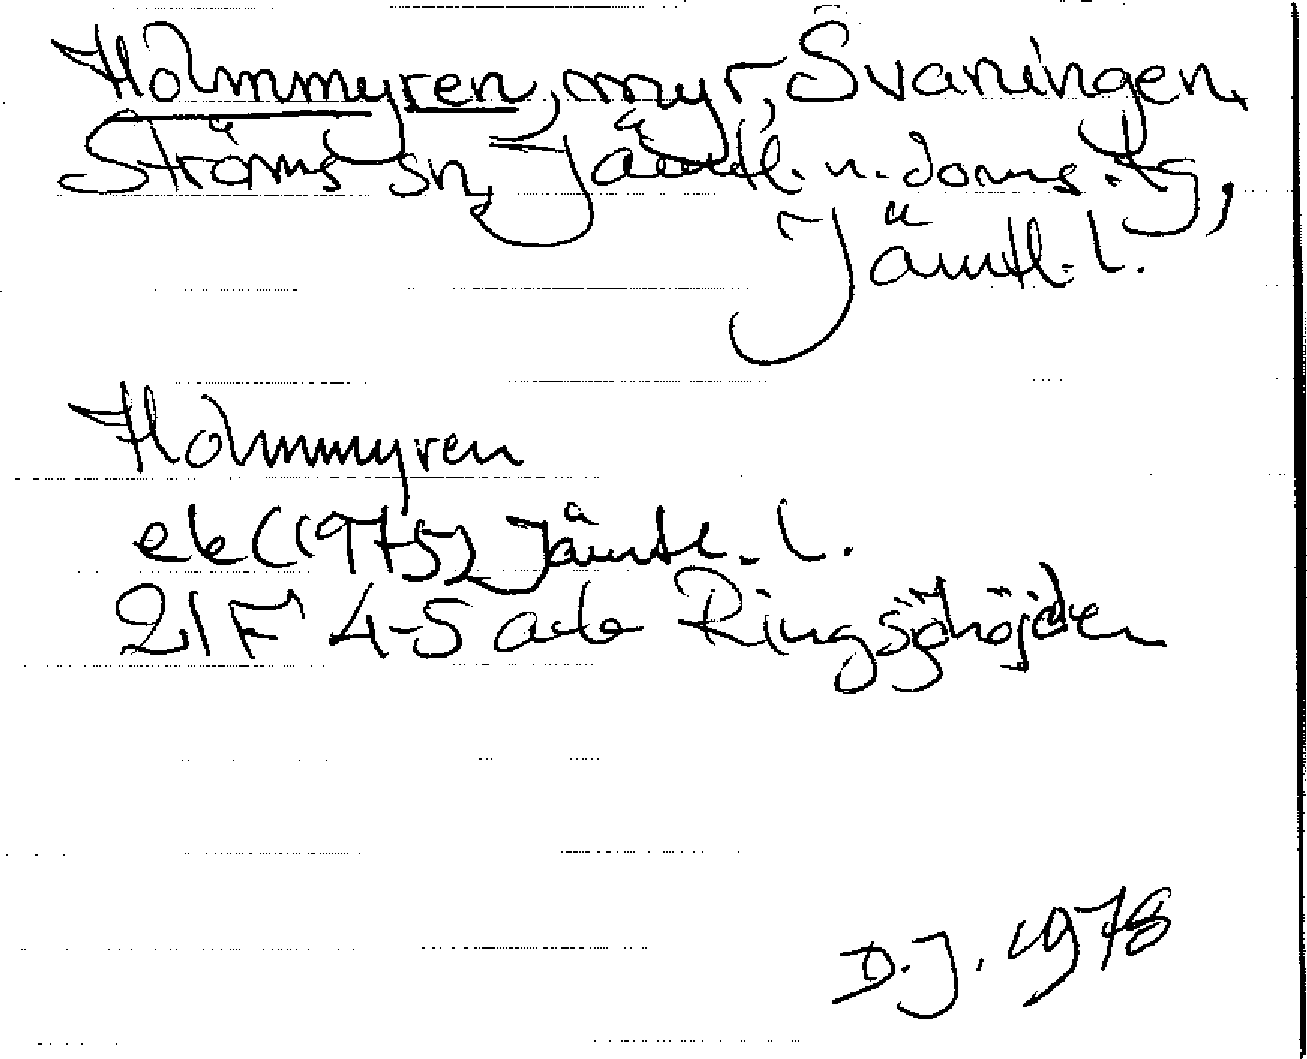 Holmmyren, myr, Svaningen,
Ströms sn, Jämtl. n. doms. tg,
Jämtl. l.
Holmmyren
ek (1975) Jämtl. l.
21F 4-5 a-b Ringsjöhöjden
D.J. 1978